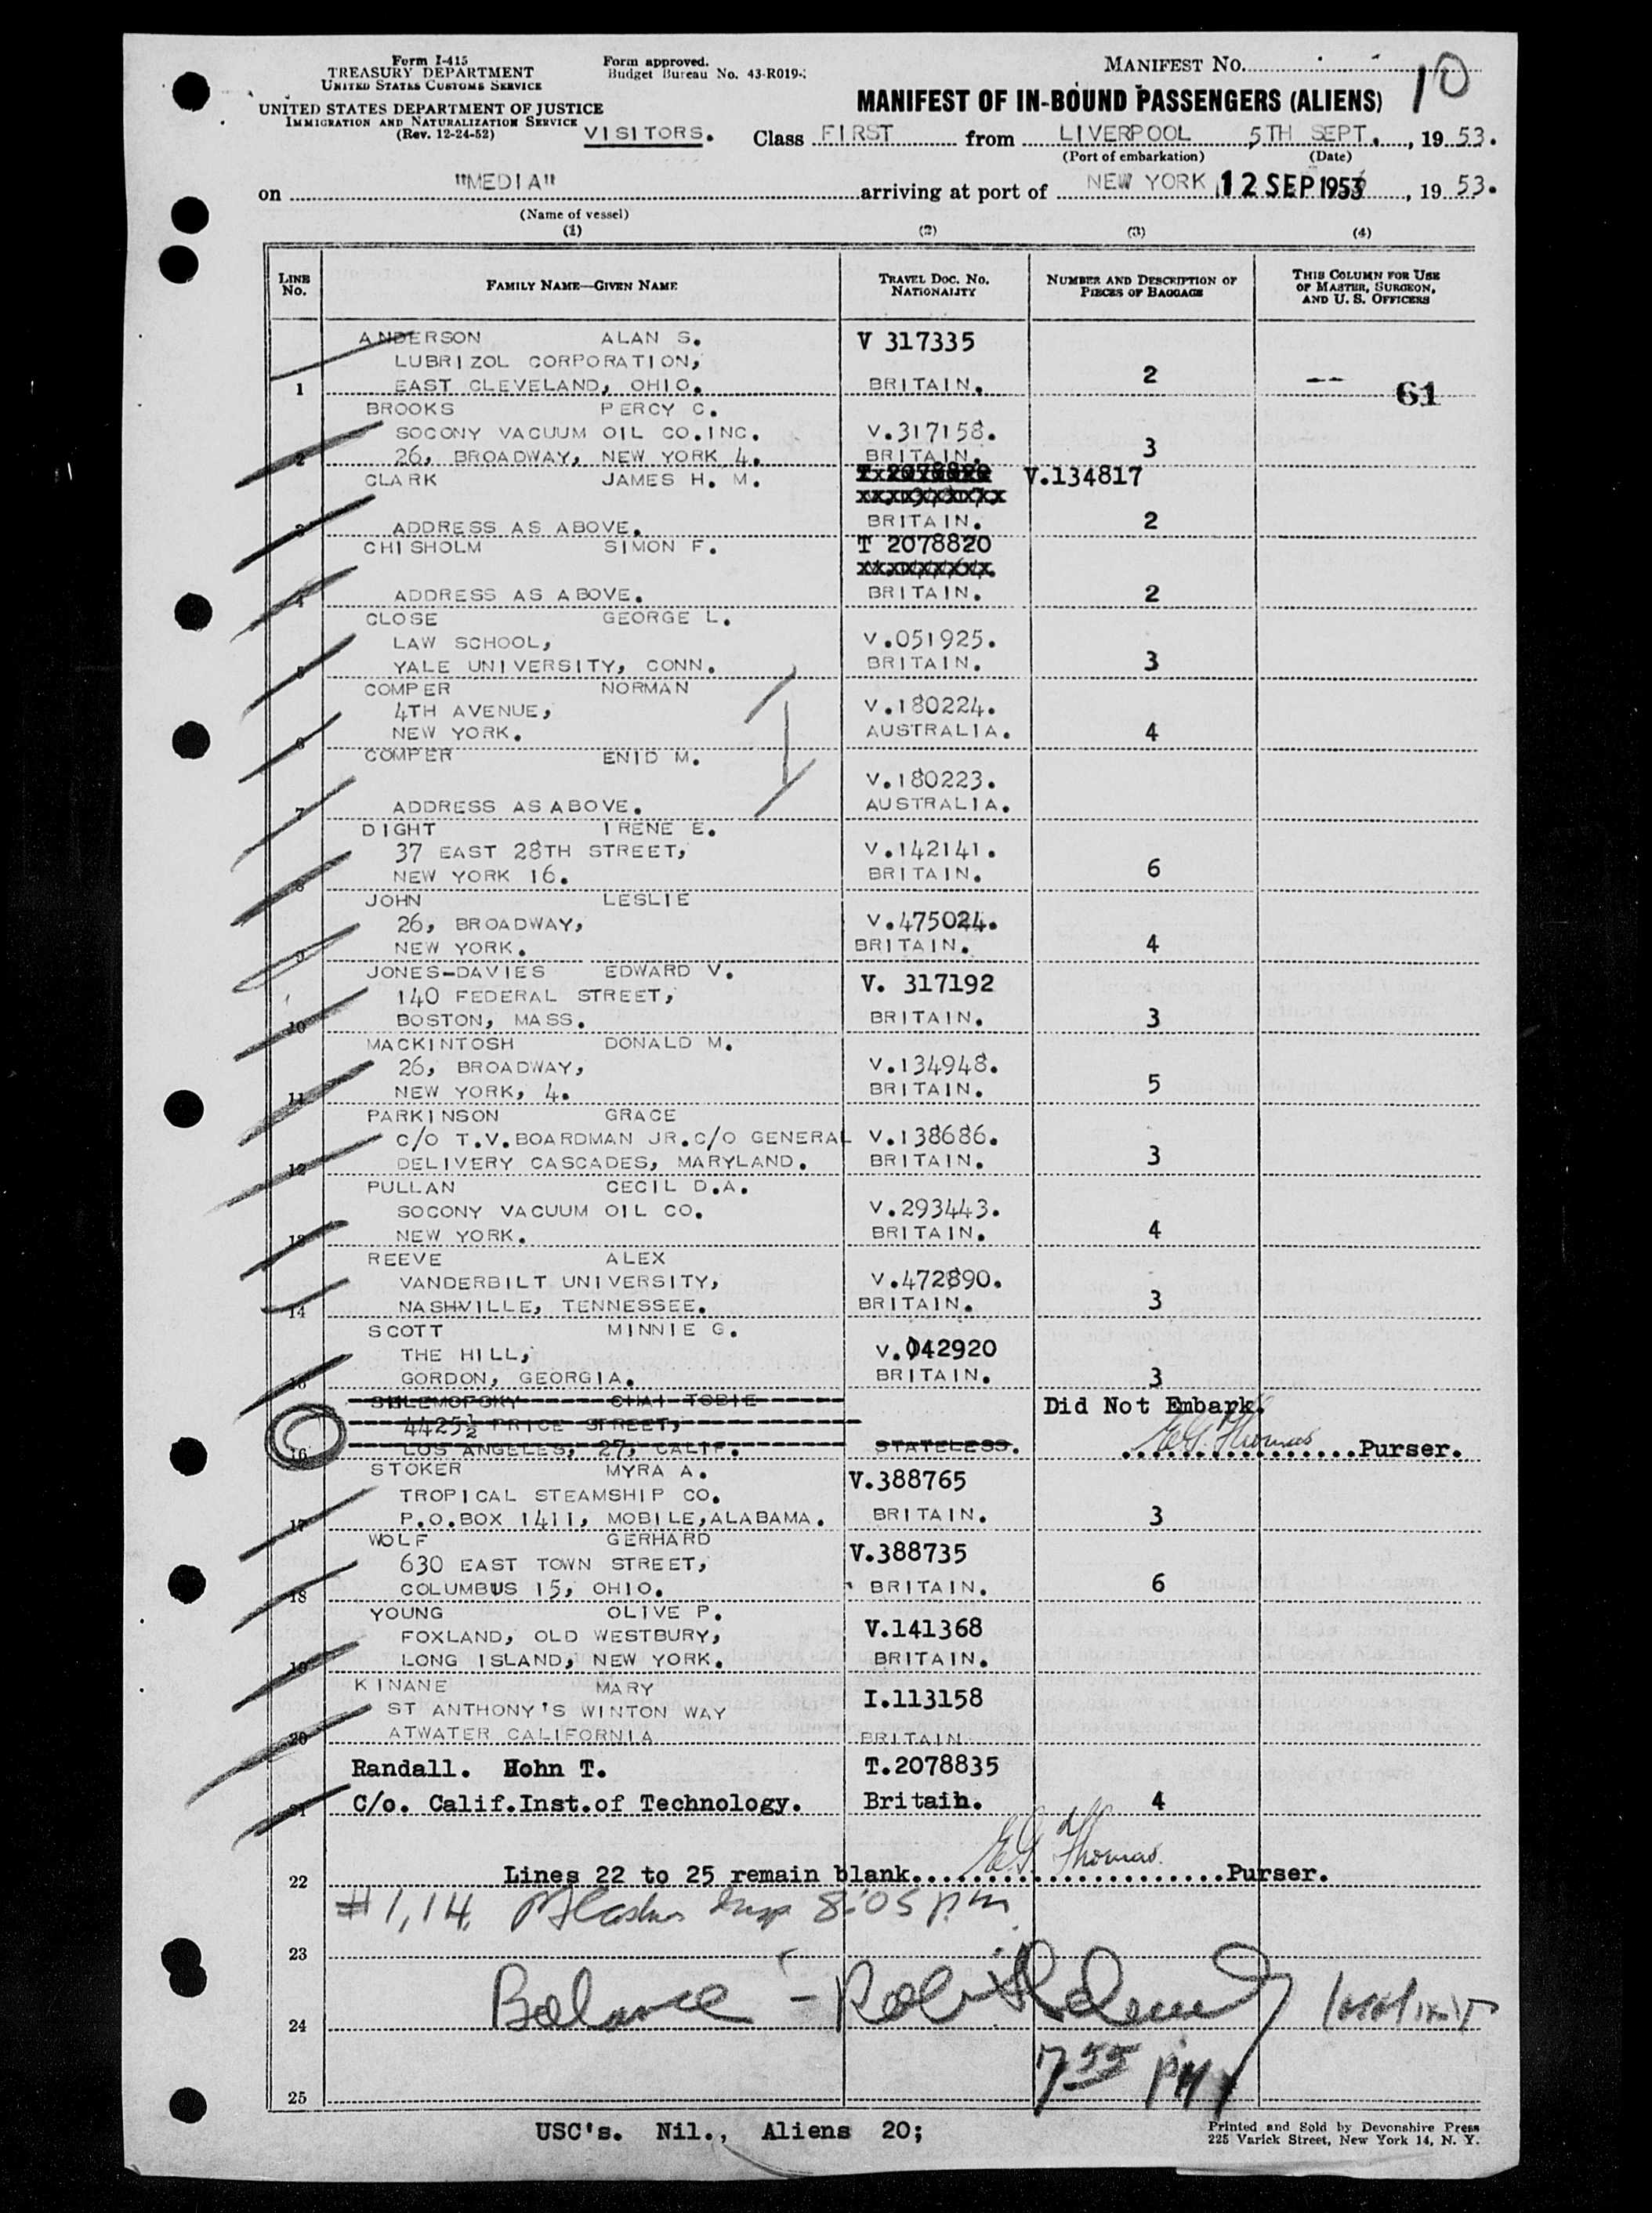 Form I-415
TREASURY DEPARTMENT
UNITED STATES CUSTOMS SERVICE
UNITED STATES DEPARTMENT OF JUSTICE
IMMIGRATION AND NATURALIZATION SERVICE
(Rev. 12-24-52)
Form approved.
Budget Bureau No. 43-R019-
MANIFEST No. 10
MANIFEST OF IN-BOUND PASSENGERS (ALIENS)
VISITORS. Class FIRST from LIVERPOOL 5TH SEPT., 1953.
(Port of embarkation) (Date)
on "MEDIA" arriving at port of NEW YORK 12 SEP 1953, 1953.
(Name of vessel)
(1) (2) (3) (4)
LINE No. FAMILY NAME—GIVEN NAME TRAVEL DOC. NO. NATIONALITY NUMBER AND DESCRIPTION OF PIECES OF BAGGAGE THIS COLUMN FOR USE OF MASTER, SURGEON, AND U. S. OFFICERS
ANDERSON ALAN S. V 317335
LUBRIZOL CORPORATION,
1 EAST CLEVELAND, OHIO. BRITAIN. 2 -- 61
BROOKS PERCY C.
SOCONY VACUUM OIL CO.INC. V.317158.
2 26, BROADWAY, NEW YORK 4. BRITAIN. 3
CLARK JAMES H. M. T 2078820 V.134817
3 ADDRESS AS ABOVE. BRITAIN. 2
CHISHOLM SIMON F. T 2078820
4 ADDRESS AS ABOVE. BRITAIN. 2
CLOSE GEORGE L.
LAW SCHOOL, V.051925.
5 YALE UNIVERSITY, CONN. BRITAIN. 3
COMPER NORMAN
4TH AVENUE, V.180224.
6 NEW YORK. AUSTRALIA. 4
COMPER ENID M.
V.180223.
7 ADDRESS AS ABOVE. AUSTRALIA.
DIGHT IRENE E.
37 EAST 28TH STREET, V.142141.
8 NEW YORK 16. BRITAIN. 6
JOHN LESLIE
26, BROADWAY, V.475024.
9 NEW YORK. BRITAIN. 4
JONES-DAVIES EDWARD V.
140 FEDERAL STREET, V. 317192
10 BOSTON, MASS. BRITAIN. 3
MACKINTOSH DONALD M.
26, BROADWAY, V.134948.
11 NEW YORK, 4. BRITAIN. 5
PARKINSON GRACE
C/O T.V.BOARDMAN JR.C/O GENERAL V.138686.
12 DELIVERY CASCADES, MARYLAND. BRITAIN. 3
PULLAN CECIL D.A.
SOCONY VACUUM OIL CO. V.293443.
13 NEW YORK. BRITAIN. 4
REEVE ALEX
VANDERBILT UNIVERSITY, V.472890.
14 NASHVILLE, TENNESSEE. BRITAIN. 3
SCOTT MINNIE G.
THE HILL, V.042920
15 GORDON, GEORGIA. BRITAIN. 3
CHAI TOBIE Did Not Embark.
4425½ PRICE STREET,
16 LOS ANGELES, 27, CALIF. STATELESS. E.G. Thomas Purser.
STOKER MYRA A. V.388765
TROPICAL STEAMSHIP CO.
17 P.O.BOX 1411, MOBILE,ALABAMA. BRITAIN. 3
WOLF GERHARD
630 EAST TOWN STREET, V.388735
18 COLUMBUS 15, OHIO. BRITAIN. 6
YOUNG OLIVE P.
FOXLAND, OLD WESTBURY, V.141368
19 LONG ISLAND, NEW YORK. BRITAIN.
KINANE MARY
ST ANTHONY'S WINTON WAY I.113158
20 ATWATER CALIFORNIA BRITAIN
Randall. Hohn T. T.2078835
21 C/o. Calif.Inst.of Technology. Britain. 4
22 Lines 22 to 25 remain blank. E.G. Thomas. Purser.
#1,14, 8:05 pm
23
24 Balance -
7 55 PM
25
USC's. Nil., Aliens 20;
Printed and Sold by Devonshire Press
225 Varick Street, New York 14, N. Y.